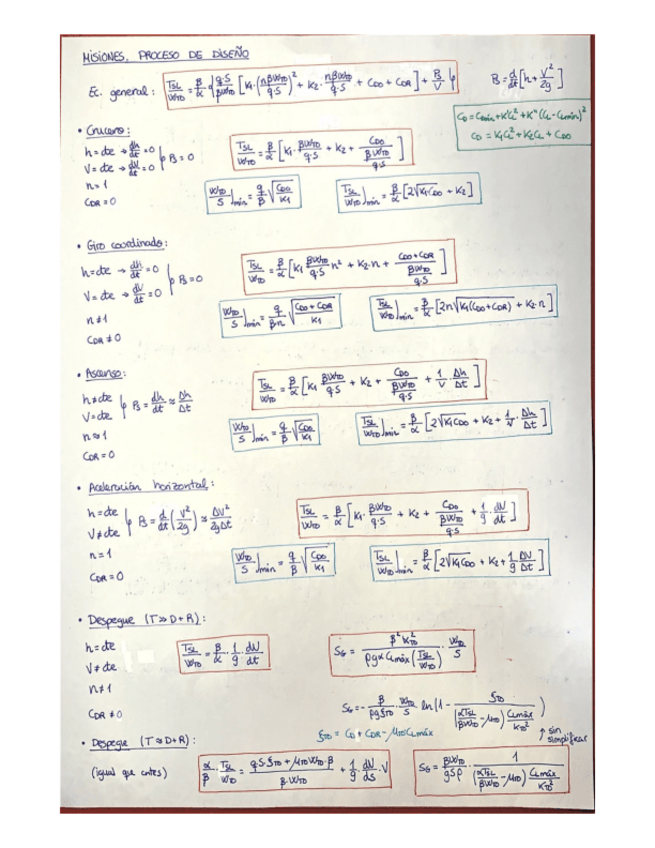 MISIONES. PROCESO DE DISEÑO
Ec. general: TSL/WTO = β/α { q·S/βWTO [K1·(nβWTO/q·S)² + K2·nβWTO/q·S + CD0 + CDR] + Ps/V }    Ps = d/dt [h + V²/2g]
CD = CDmin + K'CL² + K''(CL - CLmin)²
CD = K1CL² + K2CL + CD0
• Crucero:
h = cte → dh/dt = 0
V = cte → dV/dt = 0 } Ps = 0
n = 1
CDR = 0
TSL/WTO = β/α [K1·βWTO/q·S + K2 + CD0/(βWTO/q·S)]
WTO/S |min = q/β √(CD0/K1)    TSL/WTO |min = β/α [2√(K1CD0) + K2]
• Giro coordinado:
h = cte → dh/dt = 0
V = cte → dV/dt = 0 } Ps = 0
n ≠ 1
CDR ≠ 0
TSL/WTO = β/α [K1 βWTO/q·S n² + K2·n + (CD0 + CDR)/(βWTO/q·S)]
WTO/S |min = q/βn √((CD0 + CDR)/K1)    TSL/WTO |min = β/α [2n√(K1(CD0 + CDR)) + K2·n]
• Ascenso:
h ≠ cte
V = cte } Ps = dh/dt ≈ Δh/Δt
n ≈ 1
CDR = 0
TSL/WTO = β/α [K1 βWTO/q·S + K2 + CD0/(βWTO/q·S) + 1/V · Δh/Δt]
WTO/S |min = q/β √(CD0/K1)    TSL/WTO |min = β/α [2√(K1CD0) + K2 + 1/V · Δh/Δt]
• Aceleración horizontal:
h = cte
V ≠ cte } Ps = d/dt (V²/2g) ≈ ΔV²/2gΔt
n = 1
CDR = 0
TSL/WTO = β/α [K1·βWTO/q·S + K2 + CD0/(βWTO/q·S) + 1/g · dV/dt]
WTO/S |min = q/β √(CD0/K1)    TSL/WTO |min = β/α [2√(K1CD0) + K2 + 1/g ΔV/Δt]
• Despegue (T >> D+R):
h = cte
V ≠ cte
n ≠ 1
CDR ≠ 0
TSL/WTO = β/α · 1/g · dV/dt    SG = β² KTO² / (ρgα CLmáx (TSL/WTO)) · WTO/S
SG = - β/(ρgξTO) · WTO/S ln(1 - ξTO / ((αTSL/βWTO - μTO) CLmáx/KTO²))
↑ sin simplificar
ξTO = CD + CDR - μTO CLmáx
• Despegue (T ≈ D+R):
(igual que antes)
α/β · TSL/WTO = (q·S·ξTO + μTO WTO·β)/(β·WTO) + 1/g · dV/ds · V    SG = βWTO/gSρ · 1 / ((αTSL/βWTO - μTO) CLmáx/KTO²)